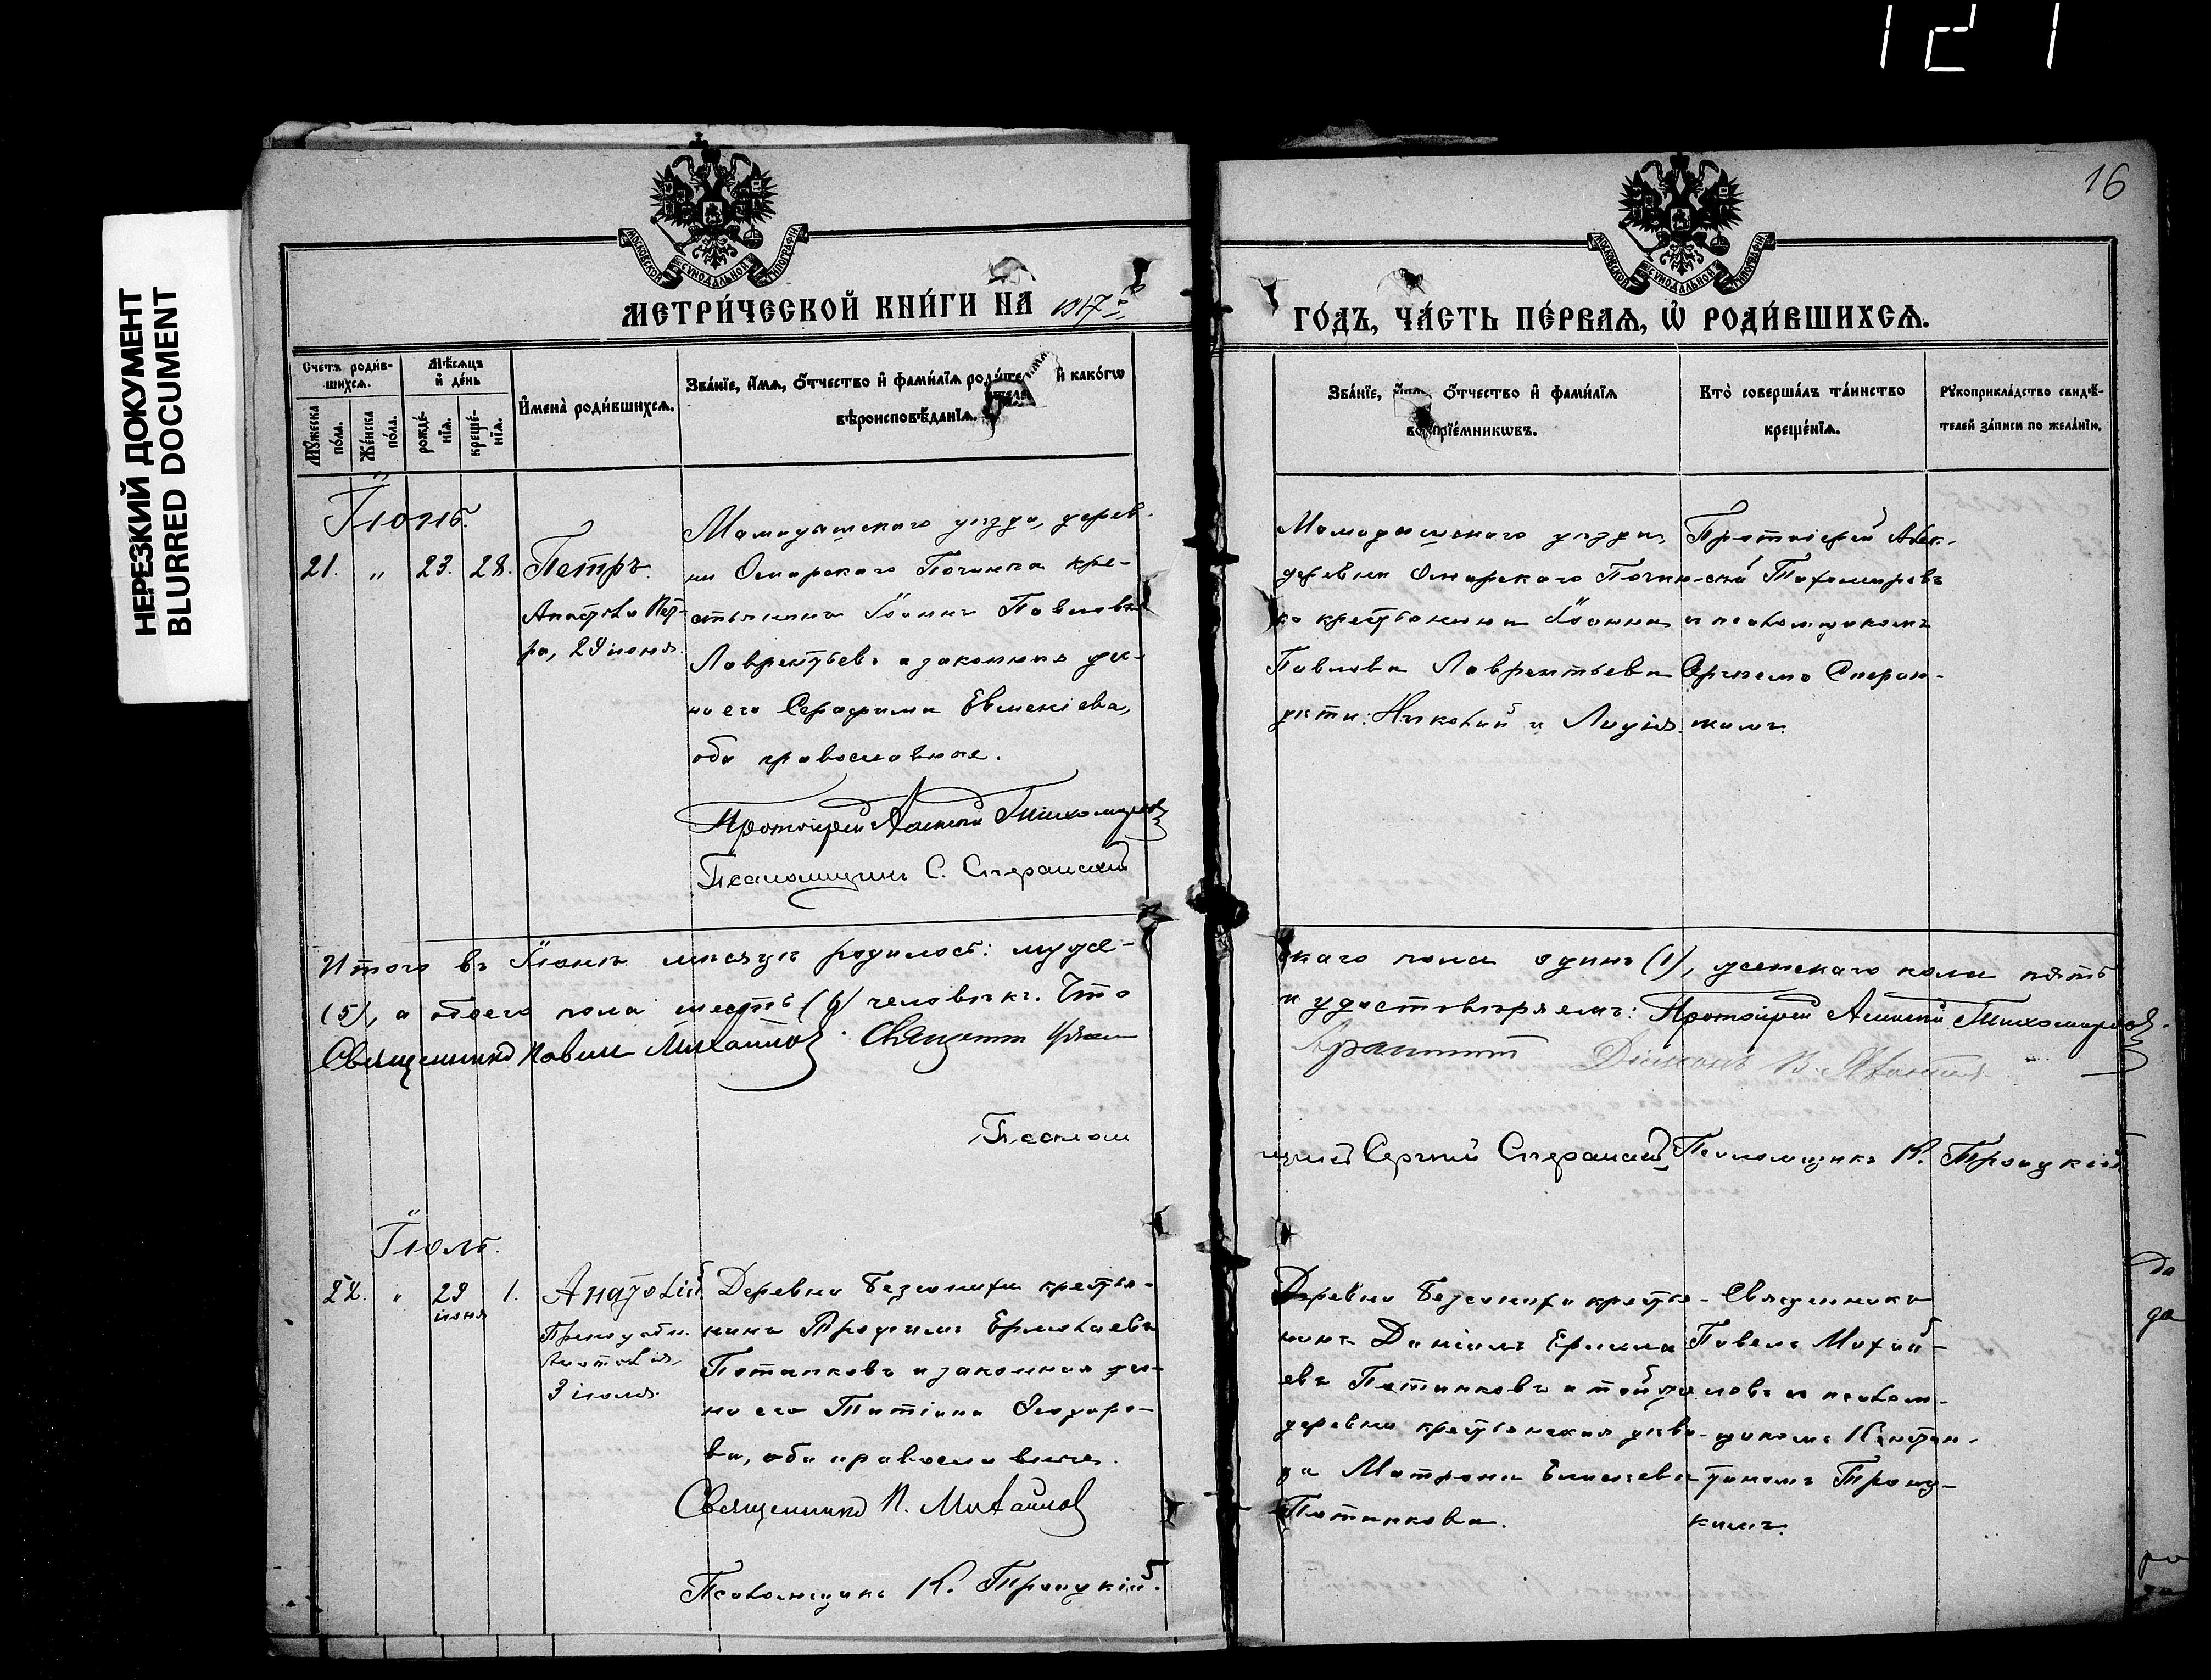 121
НЕРЕЗКИЙ ДОКУМЕНТ
BLURRED DOCUMENT
16
МОСКОВСКОЙ СѴНОДАЛЬНОЙ ТИПОГРАФІИ
МОСКОВСКОЙ СѴНОДАЛЬНОЙ ТИПОГРАФІИ
МЕТРИ́ЧЕСКОЙ КНИ́ГИ НА 1917 й
ГО́ДЪ, ЧА́СТЬ ПЕ́РВАѦ, Ѽ РОДИ́ВШИХСѦ.
Счетъ роди́в-
шихсѧ.
Мѣ́сѧцъ
и҆ де́нь
Мꙋ́жеска
по́ла.
Же́нска
по́ла.
рожде́-
нїѧ.
креще́-
нїѧ.
И҆мена̀ роди́вшихсѧ.
Зва́нїе, и҆́мѧ, ѻ҆́тчество и҆ фами́лїѧ роди́телей и҆ како́гѡ
вѣроисповѣ́данїѧ.
Зва́нїе, и҆́мѧ, ѻ҆́тчество и҆ фами́лїѧ
воспрїе́мникѡвъ.
Кто̀ соверша́лъ та́инство
креще́нїѧ.
Рꙋкоприкла́дство свидѣ́-
телей за́писи по жела́нїю.
Іюнь.
21. „ 23. 28.
Петръ.
Апостола Пет-
ра, 29 іюня.
Мамадышскаго уѣзда, дерев-
ни Омарскаго Починка кре-
стьянинъ Іоаннъ Павловъ
Лаврентьевъ и законная же-
на его Серафима Евменіева,
оба православные.
Протоіерей Алексій Тихомировъ
Псаломщикъ С. Сперанскій
Мамадышскаго уѣзда,
деревни Омарскаго Почин-
ка крестьянина Іоанна
Павлова Лаврентьева
дѣти: Николай и Лидія.
Протоіерей Алек-
сій Тихомировъ
и псаломщикомъ
Сергіемъ Сперан-
скимъ.
Итого въ Іюнѣ мѣсяцѣ родилось: муже-
скаго пола одинъ (1), женскаго пола пять
(5), а обоего пола шесть (6) человѣкъ. Что
и удостовѣряемъ: Протоіерей Алексій Тихомировъ.
Священникъ Павелъ Михайловъ. Священникъ
Діаконъ В.
Псалом
щикъ Сергій Сперанскій Псаломщикъ К. Троицкій
Іюль.
22. „ 29 1.
іюня
Анатолій
Преподобн.
Анатолія,
3 іюля.
Деревни Безсонихи крестья-
нинъ Трофимъ Ермолаевъ
Потапковъ и законная же-
на его Татіана Ѳеодоро-
ва, оба православные.
Священникъ П. Михайловъ
Псаломщикъ К. Троицкій.
Деревни Безсонихи крестья-
нинъ Даніилъ Ермола-
евъ Потапковъ и той же
деревни крестьянская дѣви-
ца Матрона
Потапкова.
Священникъ
Павелъ Михай-
ловъ и псалом-
щикомъ Констан-
тиномъ Троиц-
кимъ.